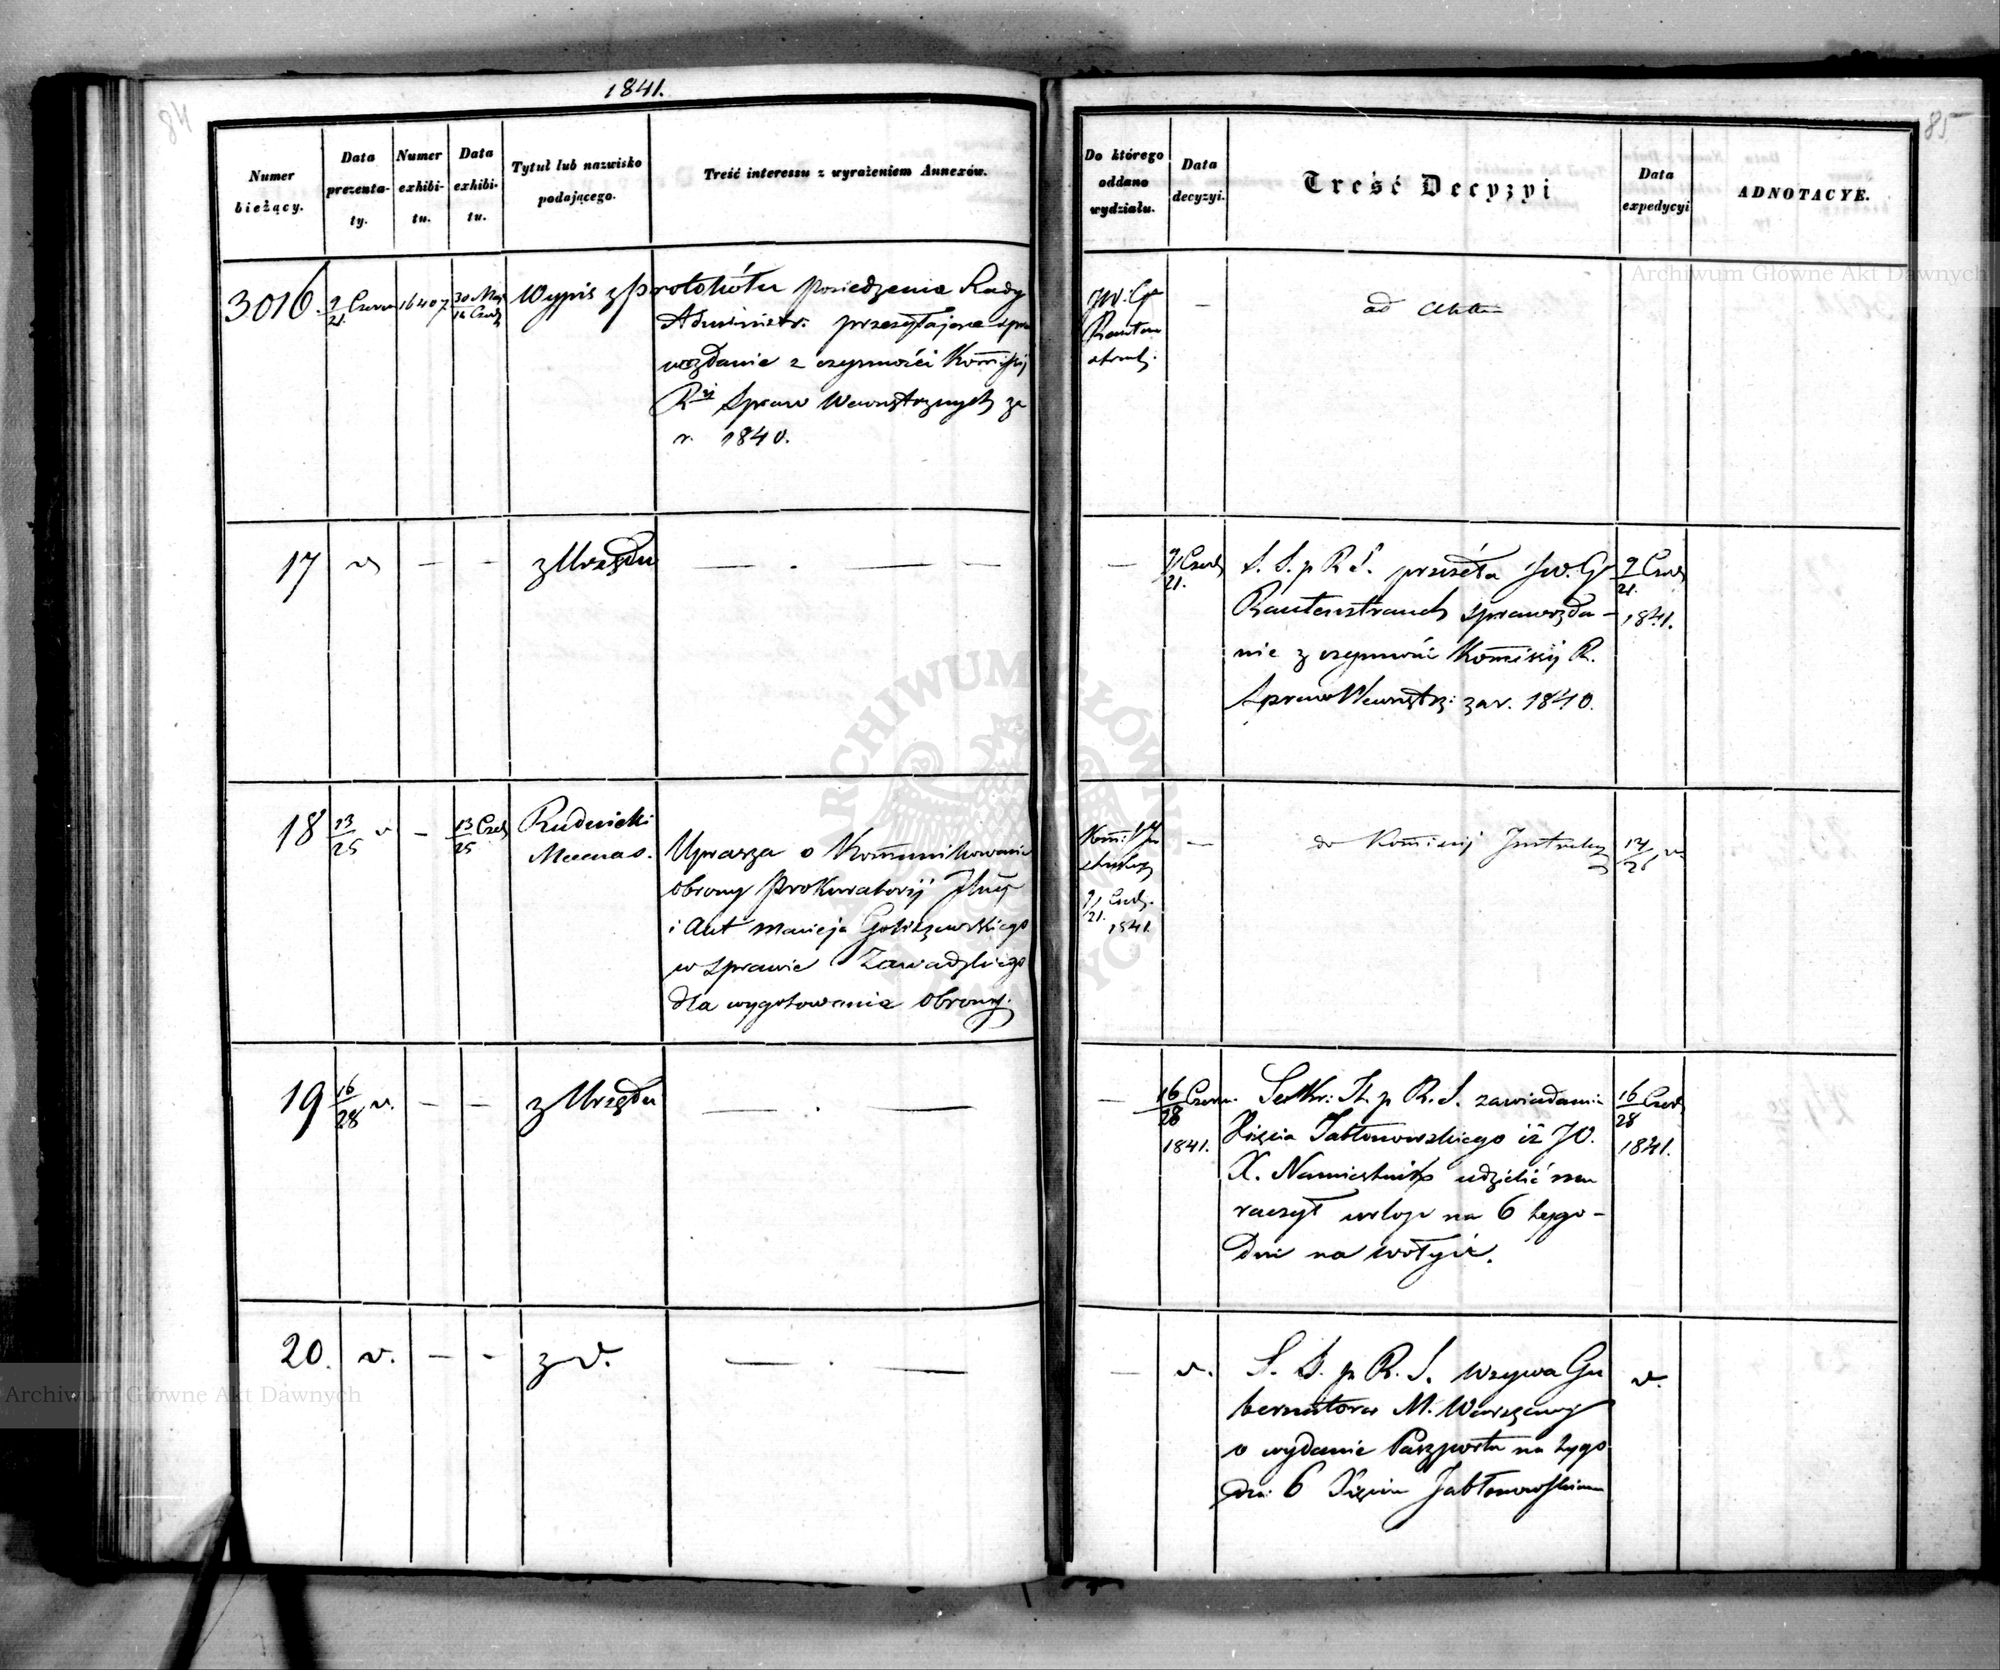 1841.
84
85
Numer bieżący.
Data prezentaty.
Numer exhibitu.
Data exhibitu.
Tytuł lub nazwisko podającego.
Treść interessu z wyrażeniem Annexów.
Do którego oddano wydziału.
Data decyzyi.
Treść Decyzyi
Data expedycyi
ADNOTACYE.
3016.
9/21. Czerw
16407
30 Maj
Wypis z protokółu Posiedzenia Rady
Administr. przesyłające spra
wozdanie z czynności Kommissyi
R. Spraw Wewnętrznych za
r. 1840.
JW. Gł
—
ad Acta
17
v
—
-
z Urzędu
— . — —
—
9/21. Czerw
S. S. p R. S. przeséła JW. Gł
Rautenstrauch sprawozda-
nie z czynności Kommissyi R.
Spraw Wewnętrz: za r. 1840.
9/21. Czerw
1841.
18
13/25 v
—
13/25 Czer
Rudnicki
Mecenas.
Uprasza o Kommunikowanie
obrony Prokuratoryi
i Akt Macieja
w sprawie Zawadzkiego
dla wygotowania obrony.
9/21. Czerw.
1841
—
do Kommissyi
v
19
16/28 v.
—
—
z Urzędu
— . —
—
16/28 Czerw.
1841.
Sekr: St. p R. S. zawiadamia
Xięcia Jabłonowskiego iż JO.
X. Namiestnik udzielić mu
raczył urlop na 6 tygo-
dni na Wołyń.
16/28 Czer
1841.
20.
v.
—
-
z v.
— . —
—
v.
S. S. p R. S. wzywa Gu
bernatora M. Warszawy
o wydanie Paszportu na tygo
dni 6 Xięciu Jabłonowskiemu
v.
ARCHIWUM GŁÓWNE AKT DAWNYCH
Archiwum Główne Akt Dawnych
Archiwum Główne Akt Dawnych